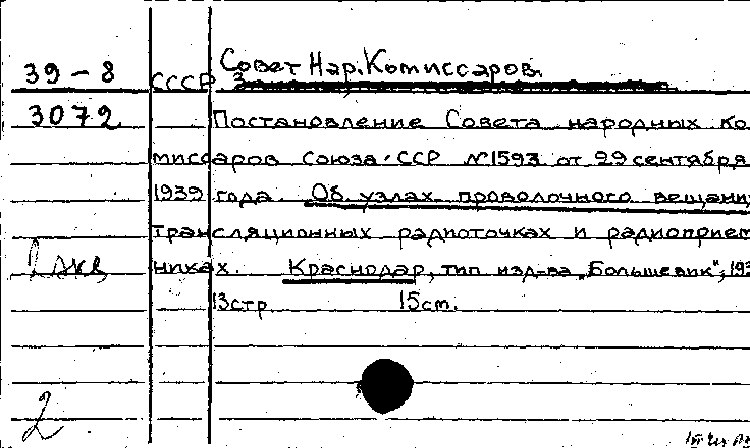 39-8 СССР Совет Нар. Комиссаров.
3072 Постановление Совета народных Ко
миссаров Союза ССР №1593 от 29 сентября
1939 года. Об узлах проволочного вещани
трансляционных радиоточках и радиоприем
2 экз никах. Краснодар, тип изд-ва „Большевик“, 193
13стр 15см.
2